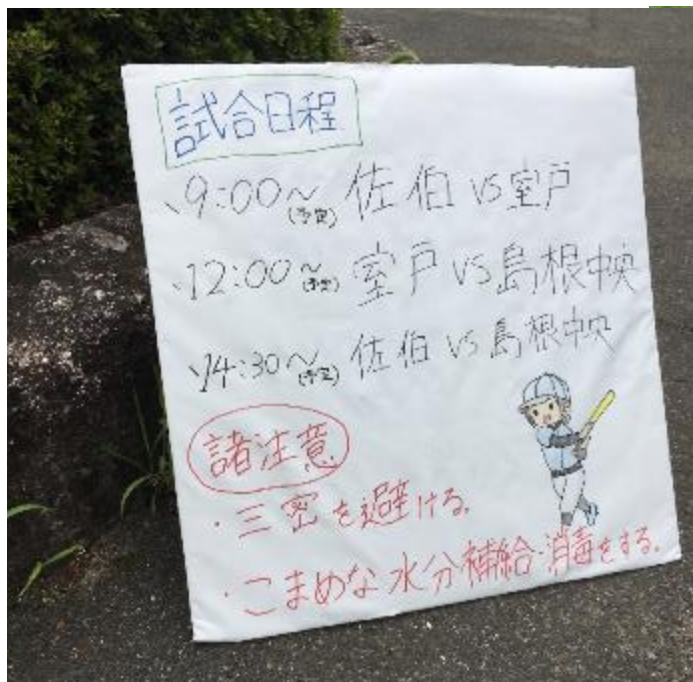 試合日程
・9:00～(予定) 佐伯 VS 室戸
・12:00～(予定) 室戸 VS 島根中央
・14:30～(予定) 佐伯 VS 島根中央
諸注意
・三密を避ける。
・こまめな水分補給・消毒をする。